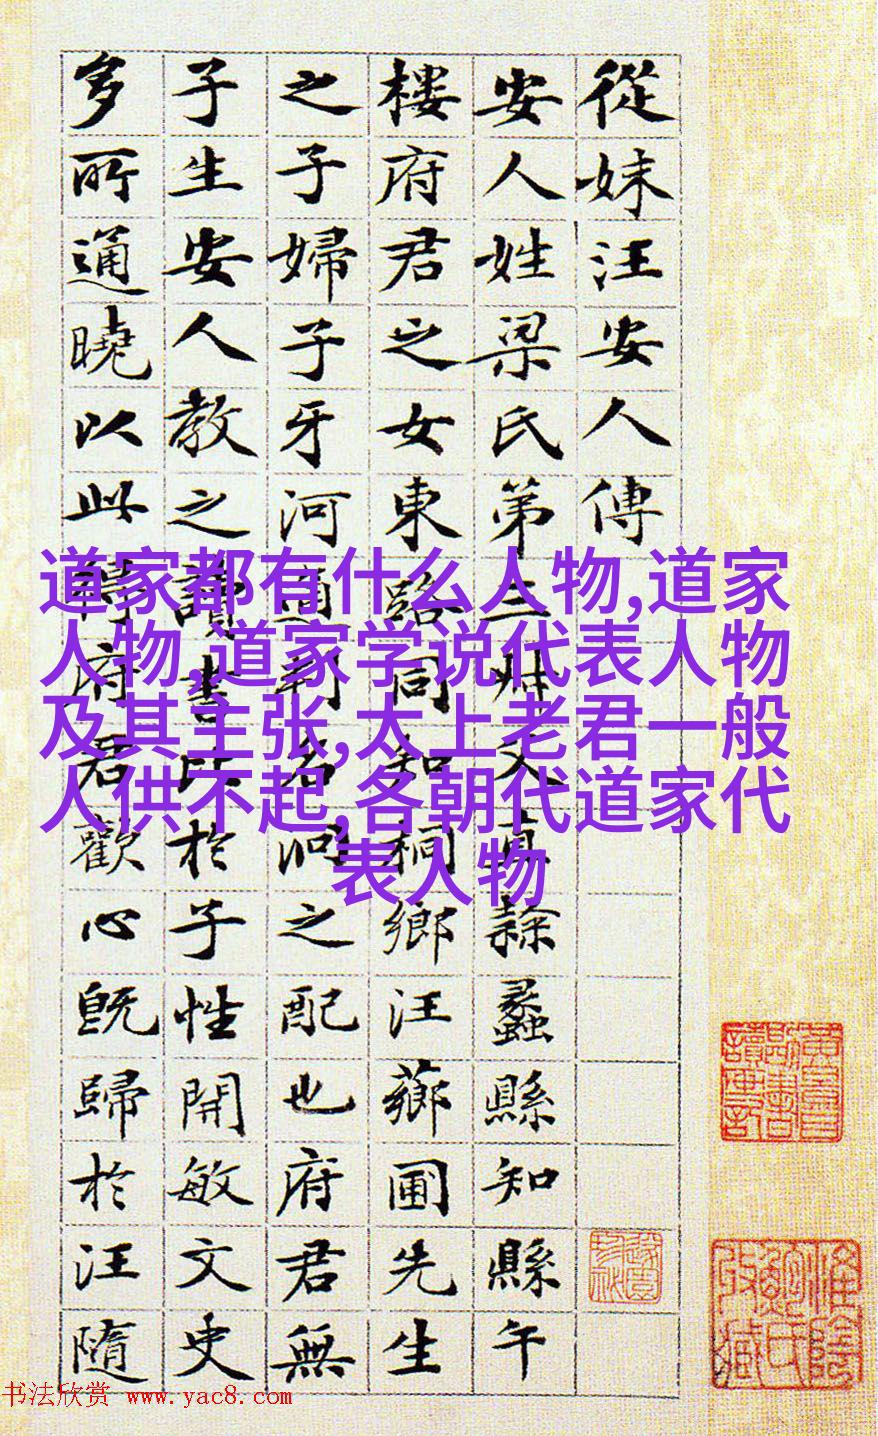 從妹汪安人傳
安人姓梁氏第三叔父直隸蠡縣知縣午
樓府君之女東路同知桐鄉汪薌圃先生
之子婦子牙河通判名泂之配也府君無
子生安人教之讀書比於子性開敏文史
多所通曉以此得府君歡心既歸於汪隨
道家都有什么人物,道家
人物,道家学说代表人物
及其主张,太上老君一般
人供不起,各朝代道家代
表人物
书法欣赏 www.yac8.com